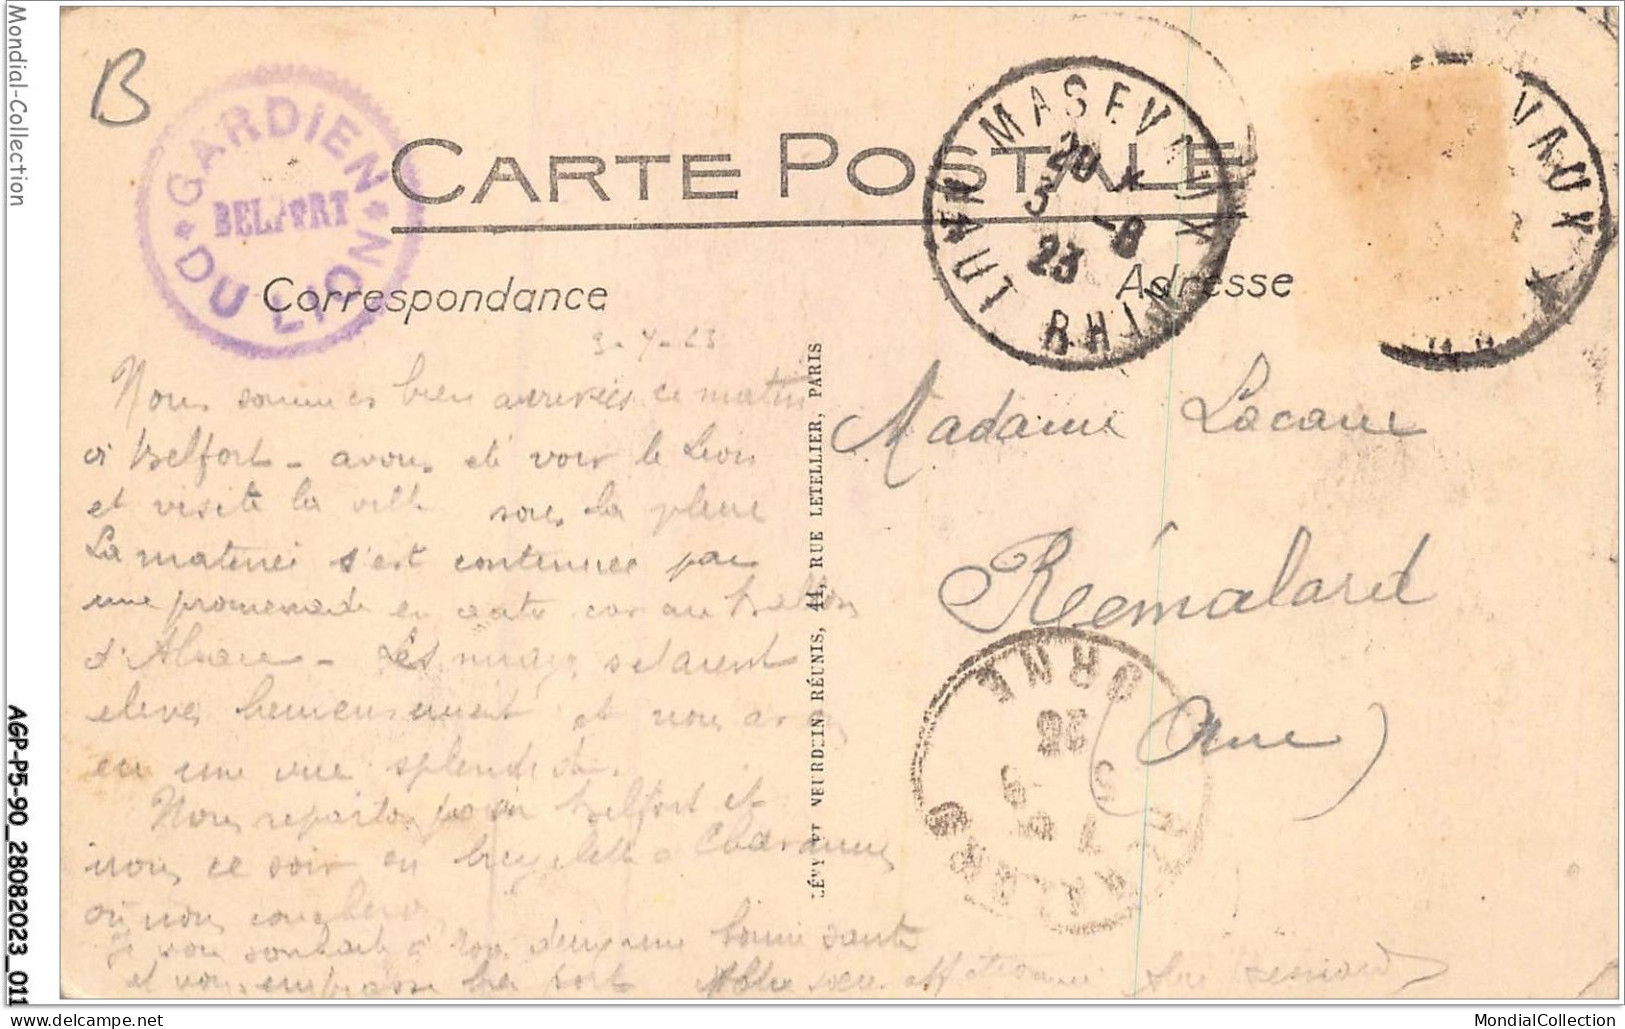 Mondial-Collection
B
GARDIEN
BELFORT
DU LION
CARTE POSTALE
MASEVAUX
20 *
5 -8
23
HAUT RHIN
VAUX
Correspondance
Adresse
Nous sommes bien arrivées ce matin
à Belfort - avons été voir le Lion
et visité la ville sous la pluie
La matinée s'est continuée par
une promenade en auto car au Ballon
d'Alsace - Les nuages s'étaient
élevés heureusement et nous avons
eu une vue splendide.
Nous repartons pour Belfort et
irons ce soir en bicyclette à
où nous coucherons
Je vous souhaite à tous bonne santé
et vous embrasse bien fort
LÉVY ET NEURDEIN RÉUNIS, 44, RUE LETELLIER, PARIS
Madame Lacaue
Rémalard
(Orne)
ORNE
AGP-P5-90_28082023_011
MondialCollection